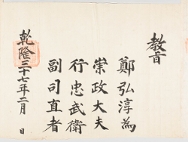 敎旨
鄭弘淳為
崇政大夫
行忠武衛
副司直者
乾隆三十七年二月　日